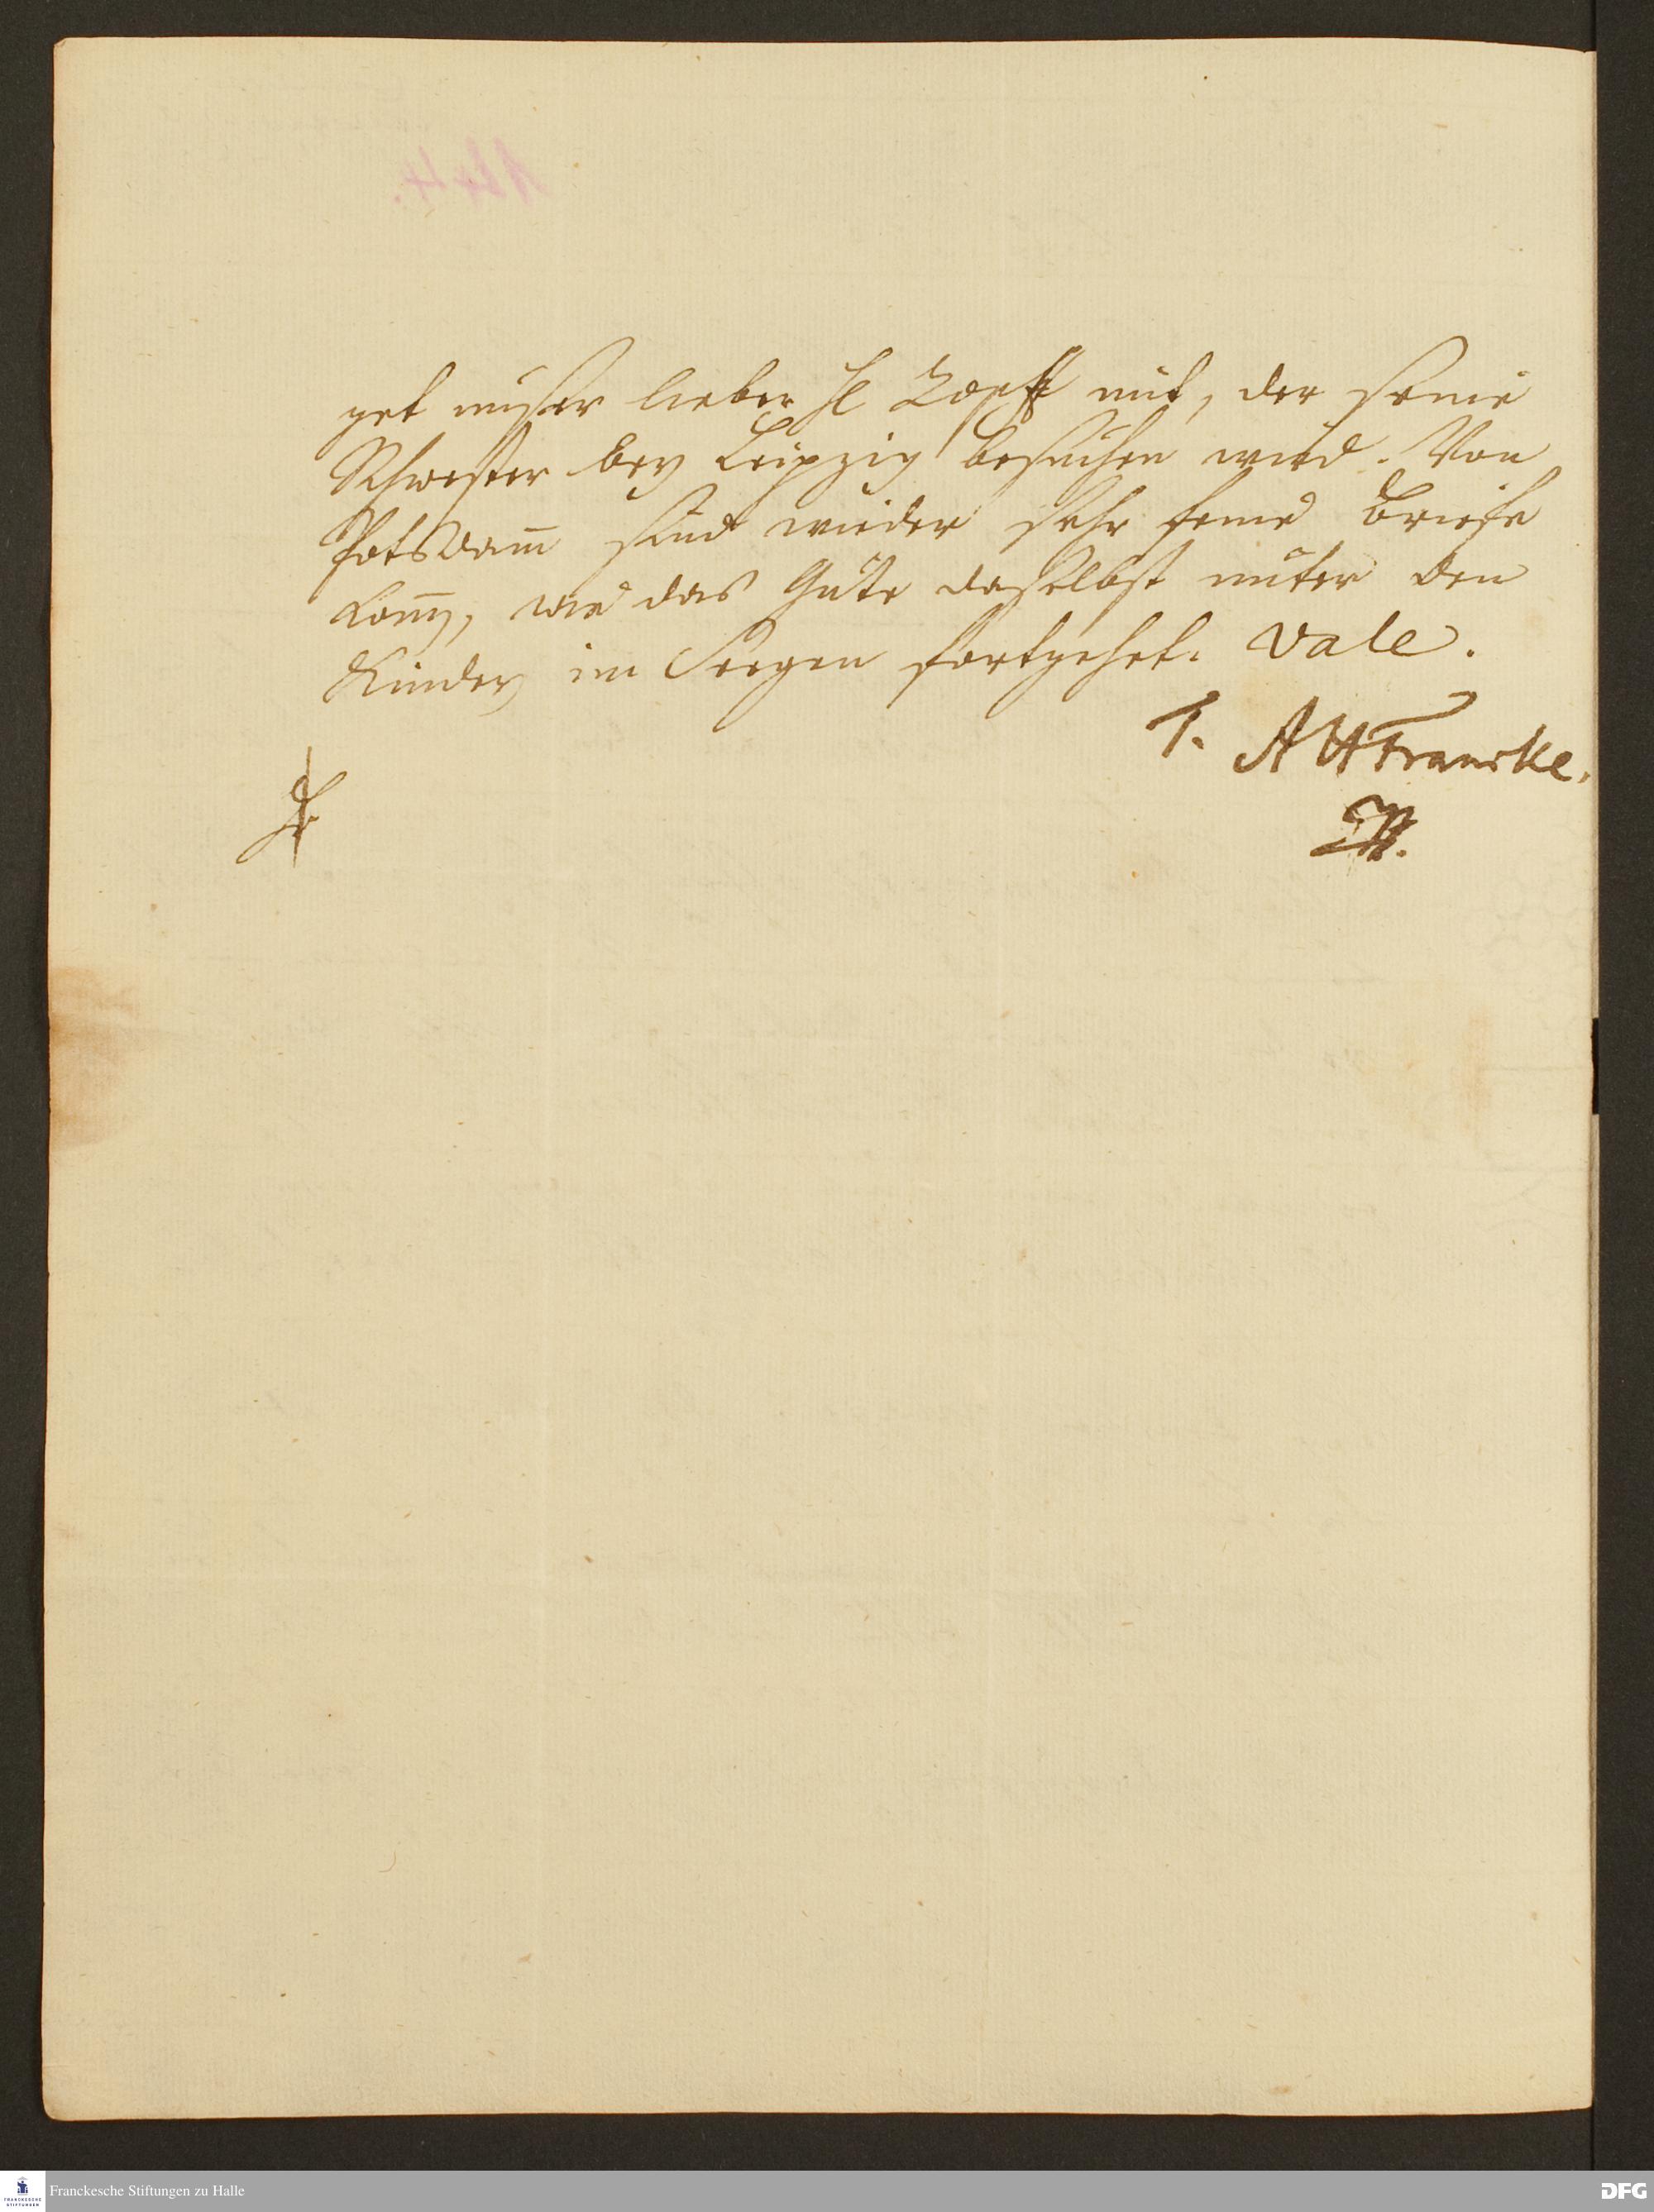 get unser lieber H Zopff mit, der seine
Schwester bey Leipzig besuchen wird. Von
Potsdam̅ sind wieder sehr feine Briefe
kom̅, wie das Gute daselbst unter den
Kindern im Seegen fortgehet. Vale.
T. AHFrancke.
Franckesche Stiftungen zu Halle
DFG